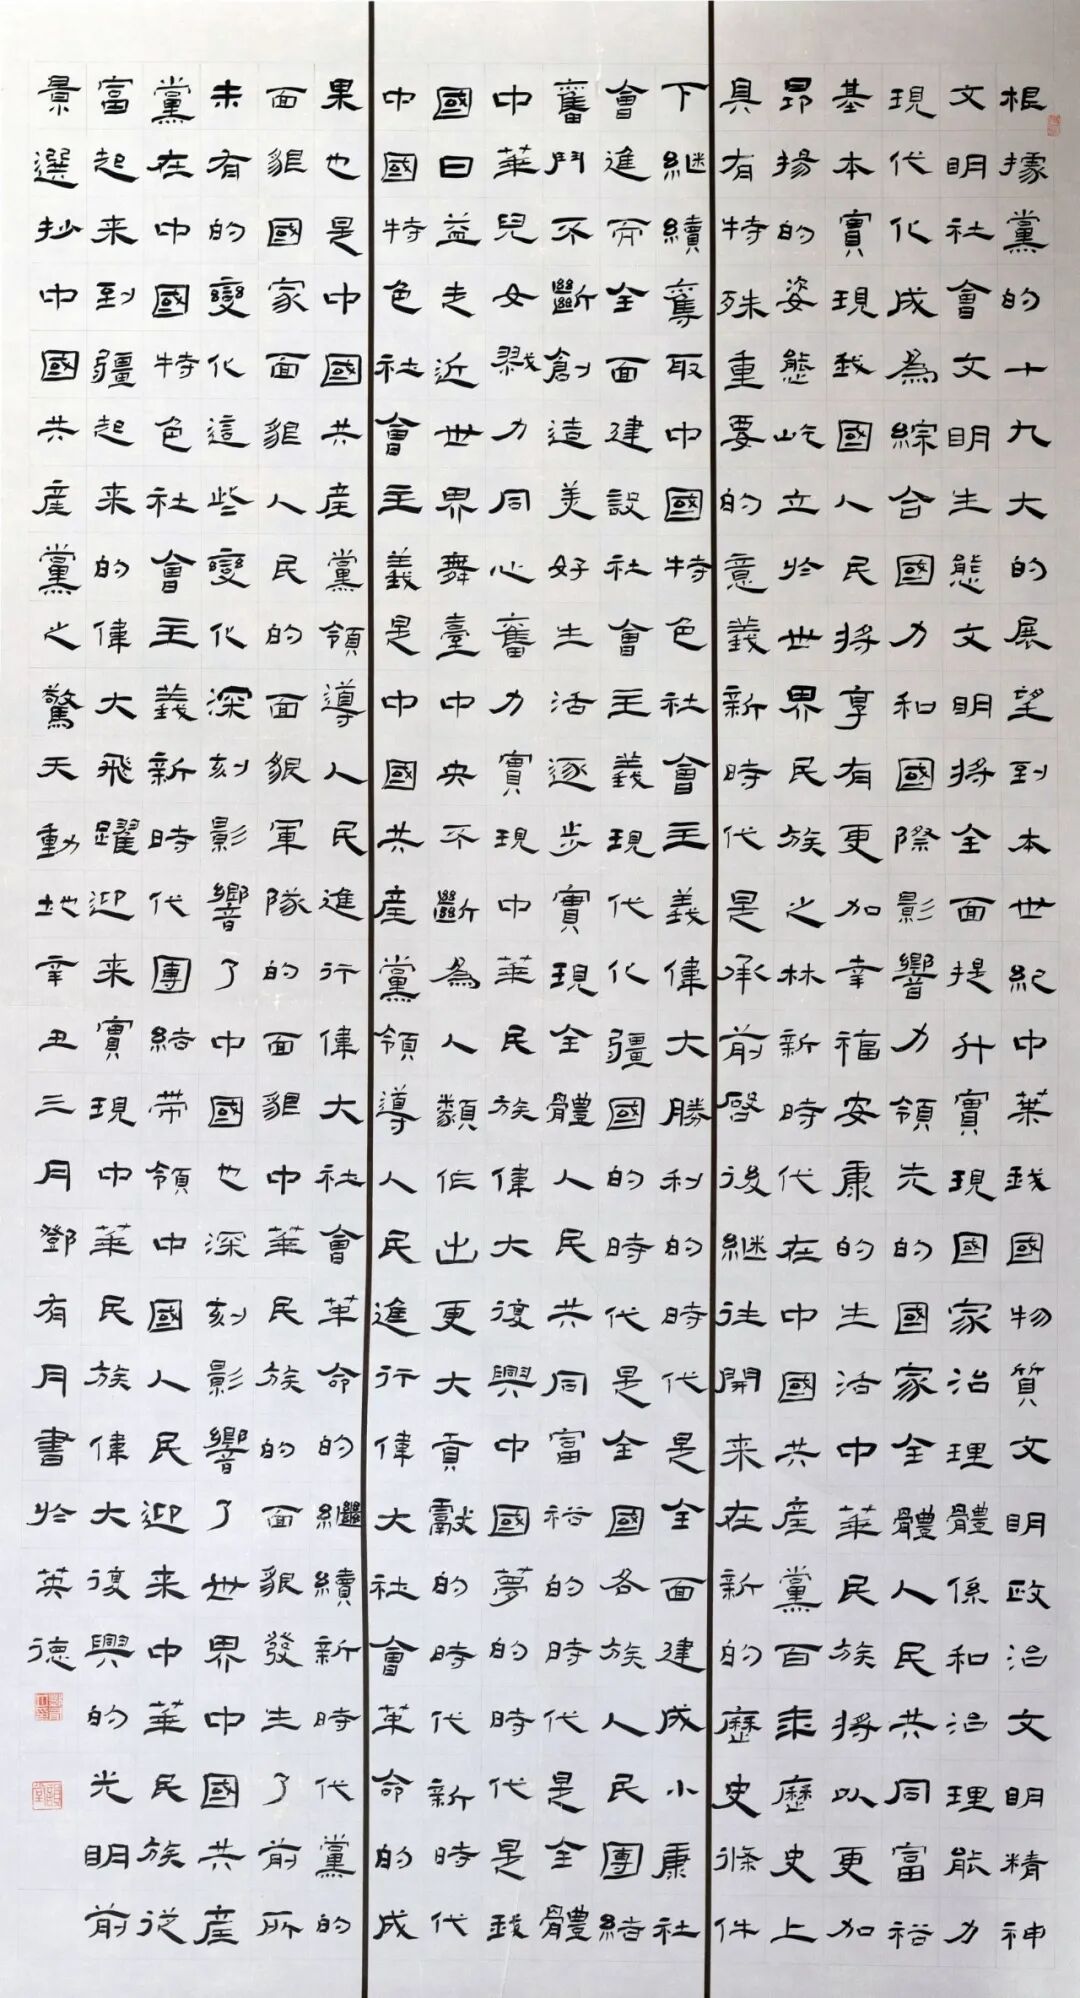 根據黨的十九大的展望到本世紀中葉我國物質文明政治文明精神
文明社會文明生態文明將全面提升實現國家治理體係和治理能力
現代化成為綜合國力和國際影響力領先的國家全體人民共同富裕
基本實現我國人民將享有更加幸福安康的生活中華民族將以更加
昂揚的姿態屹立於世界民族之林新時代在中國共產黨百年歷史上
具有特殊重要的意義新時代是承前啓後継往開来在新的歷史條件
下継續奪取中國特色社會主義偉大勝利的時代是全面建成小康社
會進而全面建設社會主義現代化疆國的時代是全國各族人民團結
奮鬥不斷創造美好生活逐步實現全體人民共同富裕的時代是全體
中華兒女勠力同心奮力實現中華民族偉大復興中國夢的時代是我
國日益走近世界舞臺中央不斷為人類作出更大貢獻的時代新時代
中國特色社會主義是中國共產黨領導人民進行偉大社會革命的成
果也是中國共產黨領導人民進行偉大社會革命的繼續新時代黨的
面貌國家面貌人民的面貌軍隊的面貌中華民族的面貌發生了前所
未有的變化這些變化深刻影響了中國也深刻影響了世界中國共產
黨在中國特色社會主義新時代團結带領中國人民迎来中華民族從
富起来到疆起来的偉大飛躍迎来實現中華民族偉大復興的光明前
景選抄中國共產黨之驚天動地辛丑三月鄧有月書於英德